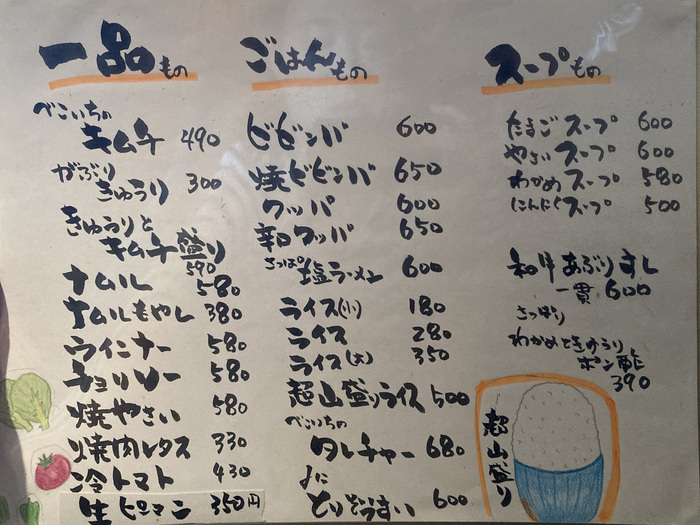 一品もの
べこいちの
キムチ 490
がぶり
きゅうり 300
きゅうりと
キムチ盛り
590
ナムル 580
ナムルもやし 380
ウインナー 580
チョリソー 580
焼やさい 580
焼肉レタス 330
冷トマト 430
生ピーマン 350円
ごはんもの
ビビンバ 600
焼ビビンバ 650
クッパ 600
辛口クッパ 650
さっぱり
塩ラーメン 600
ライス(小) 180
ライス 280
ライス(大) 350
超山盛りライス 500
べこいちの
タレチャー 680
とりぞうすい 600
スープもの
たまごスープ 600
やさいスープ 600
わかめスープ 580
にんにくスープ 500
和牛あぶりすし
一貫 600
さっぱり
わかめときゅうり
ポン酢
390
超山盛り